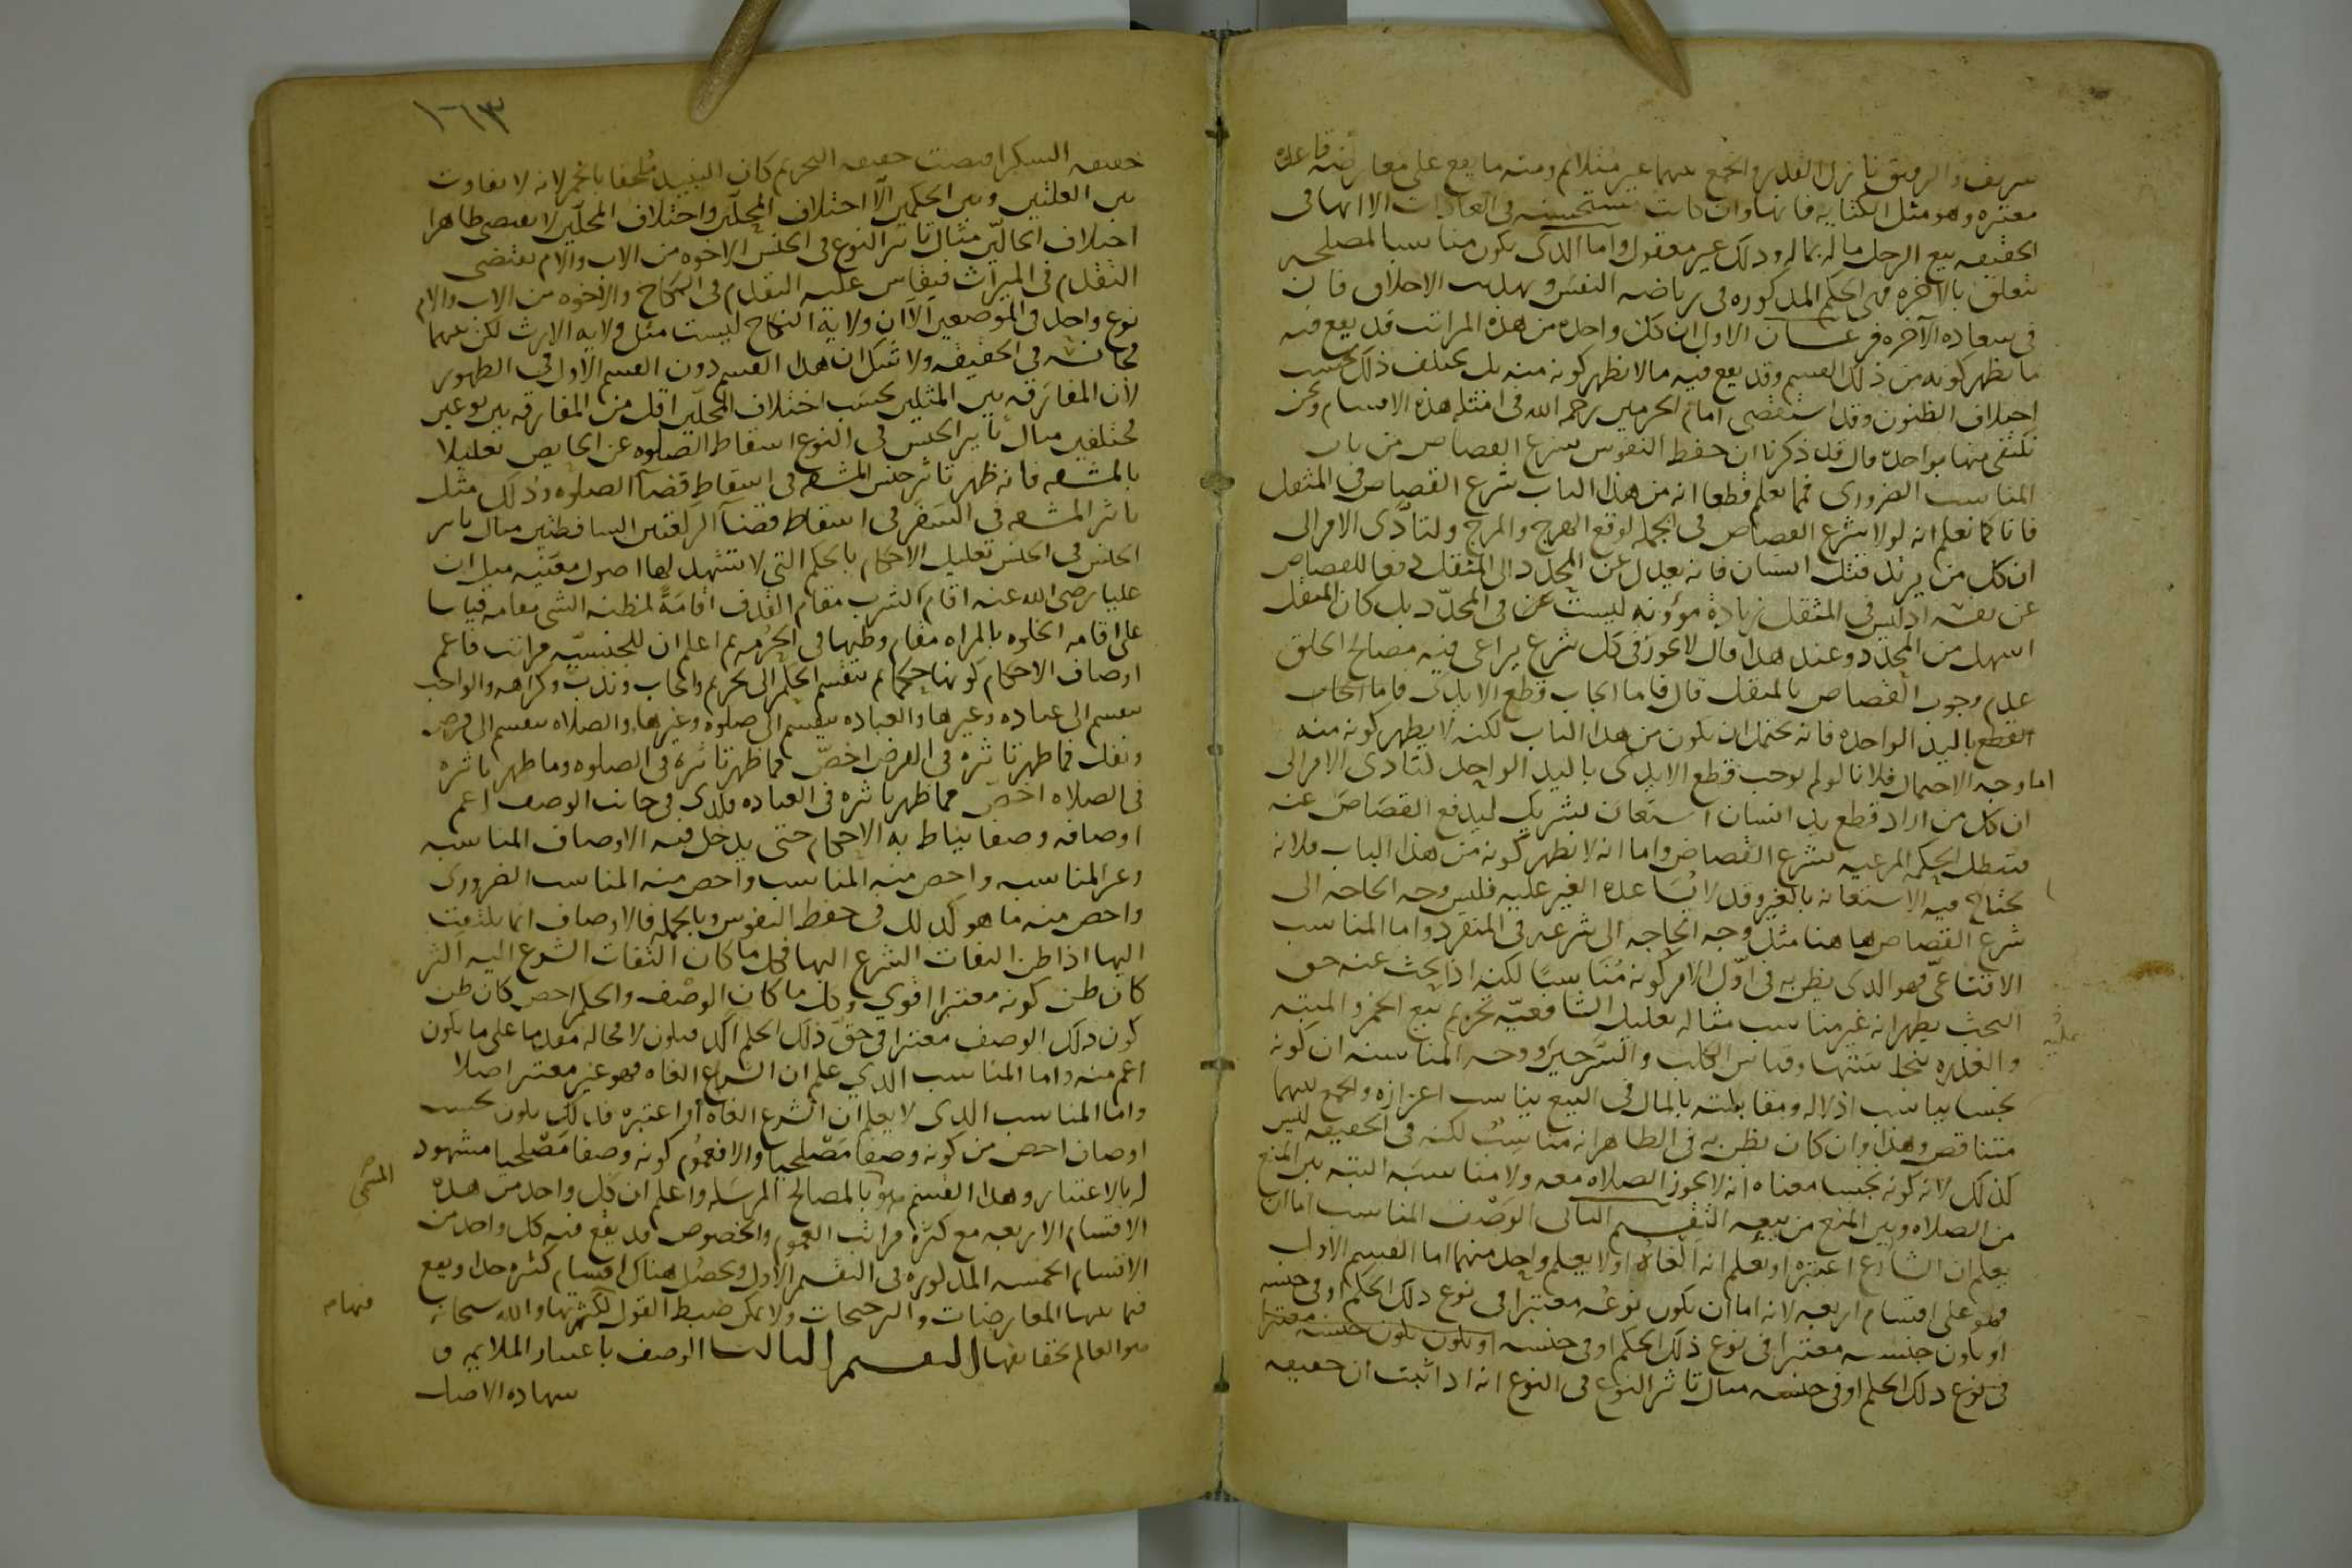 شريف والرقيق نازل القدر والجمع بينهما غير متلائم ومنه ما يقع على معارضة قاعدة
معتبرة وهو مثل الكتابة فانها وان كانت مستحسنة في العادات الا انها في
الحقيقة بيع الرجل ماله بماله وذلك غير معقول واما الذي يكون مناسبا لمصلحة
تتعلق بالآخرة فهي الحكم المذكورة في رياضة النفس وتهذيب الاخلاق فان
في سعادة الآخرة فرعان الاول ان كل واحدة من هذه المراتب قد يقع فيه
ما يظهر كونه من ذلك القسم وقد يقع فيه ما لا يظهر كونه منه بل يختلف ذلك بحسب
اختلاف الظنون وقد استقصى امام الحرمين رحمه الله في امثلة هذه الاقسام ونحن
نكتفي منها بواحدة قال قد ذكرنا ان حفظ النفوس بشرع القصاص من باب
المناسب الضروري فمما نعلم قطعا انه من هذا الباب شرع القصاص في المثقل
فانا كما نعلم انه لولا شرع القصاص في الجملة لوقع الهرج والمرج ولتأدى الامر الى
ان كل من يريد قتل انسان فانه يعدل عن المحدد الى المثقل دفعا للقصاص
عن نفسه اذ ليس في المثقل زيادة مؤونة ليست في المحدد بل كان المثقل
اسهل من المحدد وعند هذا قال لا يجوز في كل شرع يراعى فيه مصالح الخلق
عدم وجوب القصاص بالمثقل قال فاما ايجاب قطع الايدي فاما ايجاب
القطع باليد الواحدة فانه يحتمل ان يكون من هذا الباب لكنه لا يظهر كونه منه
اما وجه الاحتمال فلانا لو لم نوجب قطع الايدي باليد الواحدة لتأدى الامر الى
ان كل من اراد قطع يد انسان استعان بشريك ليدفع القصاص عنه
فتبطل الحكمة المرعية بشرع القصاص واما انه لا يظهر كونه من هذا الباب فلانه
يحتاج فيه الاستعانة بالغير وقد لا يساعده الغير عليه فليس وجه الحاجة الى
شرع القصاص هاهنا مثل وجه الحاجة الى شرعه في المنفرد واما المناسب
الاقناعي فهو الذي يظن به في اول الامر كونه مناسبا لكنه اذا بحث عنه حق
البحث يظهر انه غير مناسب مثاله تعليل الشافعية تحريم بيع الخمر والميتة
والعذرة بنجاستها وقياس الكلب والسرجين عليه ووجه المناسبة ان كونه
نجسا يناسب اذلاله ومقابلته بالمال في البيع يناسب اعزازه والجمع بينهما
متناقض وهذا وان كان يظن به في الظاهر انه مناسب لكنه في الحقيقة ليس
كذلك لان كونه نجسا معناه انه لا يجوز الصلاة معه ولا مناسبة البتة بين المنع
من الصلاة وبين المنع من بيعه التقسيم الثاني الوصف المناسب اما ان
يعلم ان الشارع اعتبره او يعلم انه الغاه او لا يعلم واحد منهما اما القسم الاول
فهو على اقسام اربعة لانه اما ان يكون نوعه معتبرا في نوع ذلك الحكم او في جنسه
او يكون جنسه معتبرا في نوع ذلك الحكم او في جنسه او يكون جنسه معتبرا
في نوع ذلك الحكم او في جنسه مثال تأثير النوع في النوع انه اذا ثبت ان حقيقة
١٦٣
حقيقة السكر اقتضت حقيقة التحريم كان النبيذ ملحقا بالخمر لانه لا تفاوت
بين العلتين وبين الحكمين الا اختلاف المحلين واختلاف المحلين لا يقتضي ظاهرا
اختلاف الحالين مثال تأثير النوع في الجنس الاخوة من الاب والام تقتضي
التقدم في الميراث فيقاس عليه التقدم في النكاح والاخوة من الاب والام
نوع واحد في الموضعين الا ان ولاية النكاح ليست مثل ولاية الارث لكن بينهما
مجانسة في الحقيقة ولا شك ان هذا القسم دون القسم الاول في الظهور
لان المفارقة بين المثلين بحسب اختلاف المحلين اقل من المفارقة بين نوعين
مختلفين مثال تأثير الجنس في النوع اسقاط الصلوة عن الحايض تعليلا
بالمشقة فانه ظهر تأثير جنس المشقة في اسقاط قضآ الصلوة وذلك مثل
تأثير المشقة في السفر في اسقاط قضآ الركعتين الساقطتين مثال تأثير
الجنس في الجنس تعليل الاحكام بالحكم التي لا تشهد لها اصول معينة مثل ان
عليا رضي الله عنه اقام الشرب مقام القذف اقامة لمظنة الشي مقامه قياسا
على اقامة الخلوة بالمراة مقام وطيها في الحرمة ثم اعلم ان للجنسية مراتب فاعم
اوصاف الاحكام كونها حكما ثم ينقسم الحكم الى تحريم وايجاب وندب وكراهة والواجب
ينقسم الى عبادة وغيرها والعبادة ينقسم الى صلوة وغيرها والصلاة ينقسم الى فرض
ونفل فما ظهر تأثيره في الفرض اخص مما ظهر تأثيره في الصلوة وما ظهر تأثيره
في الصلاة اخص مما ظهر تأثيره في العبادة وكذى في جانب الوصف اعم
اوصافه وصفا يناط به الاحكام حتى يدخل فيه الاوصاف المناسبة
وغير المناسبة واخص منه المناسب واخص منه المناسب الضروري
واخص منه ما هو كذلك في حفظ النفوس وبالجملة فالاوصاف انما يلتفت
اليها اذا ظن التفات الشرع اليها فكل ما كان التفات الشرع اليه اكثر
كان ظن كونه معتبرا اقوى وكل ما كان الوصف والحكم اخص كان ظن
كون ذلك الوصف معتبرا في حق ذلك الحكم آكد فيكون لا محالة مقدما على ما يكون
اعم منه واما المناسب الذي علم ان الشرع الغاه فهو غير معتبر اصلا
واما المناسب الذي لا يعلم ان الشرع الغاه او اعتبره فذلك يكون بحسب
اوصاف اخص من كونه وصفا مصلحيا والا فعموم كونه وصفا مصلحيا مشهود
له بالاعتبار وهذا القسم هو المسمى بالمصالح المرسلة واعلم ان كل واحد من هذه
الاقسام الاربعة مع كثرة مراتب العموم والخصوص قد يقع فيه كل واحد من
الاقسام الخمسة المذكورة في التقسيم الاول ويحصل هناك اقسام كثيرة جدا ويقع
فيما بينها المعارضات والترجيحات ولا يمكن ضبط القول فيها لكثرتها والله سبحانه
هو العالم بحقايقها التقسيم الثالث الوصف باعتبار الملايمة و
شهادة الاصل